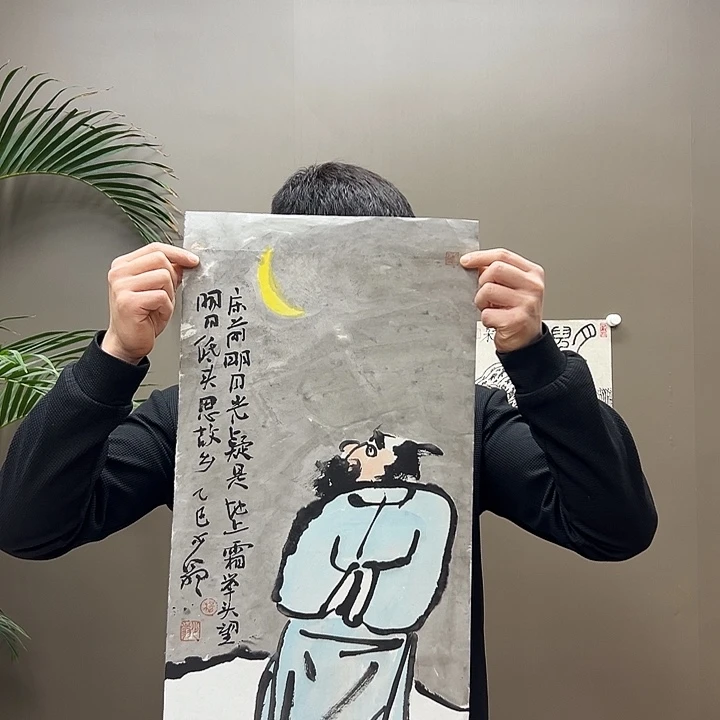 床前明月光疑是地上霜举头望
明月低头思故乡 乙巳少